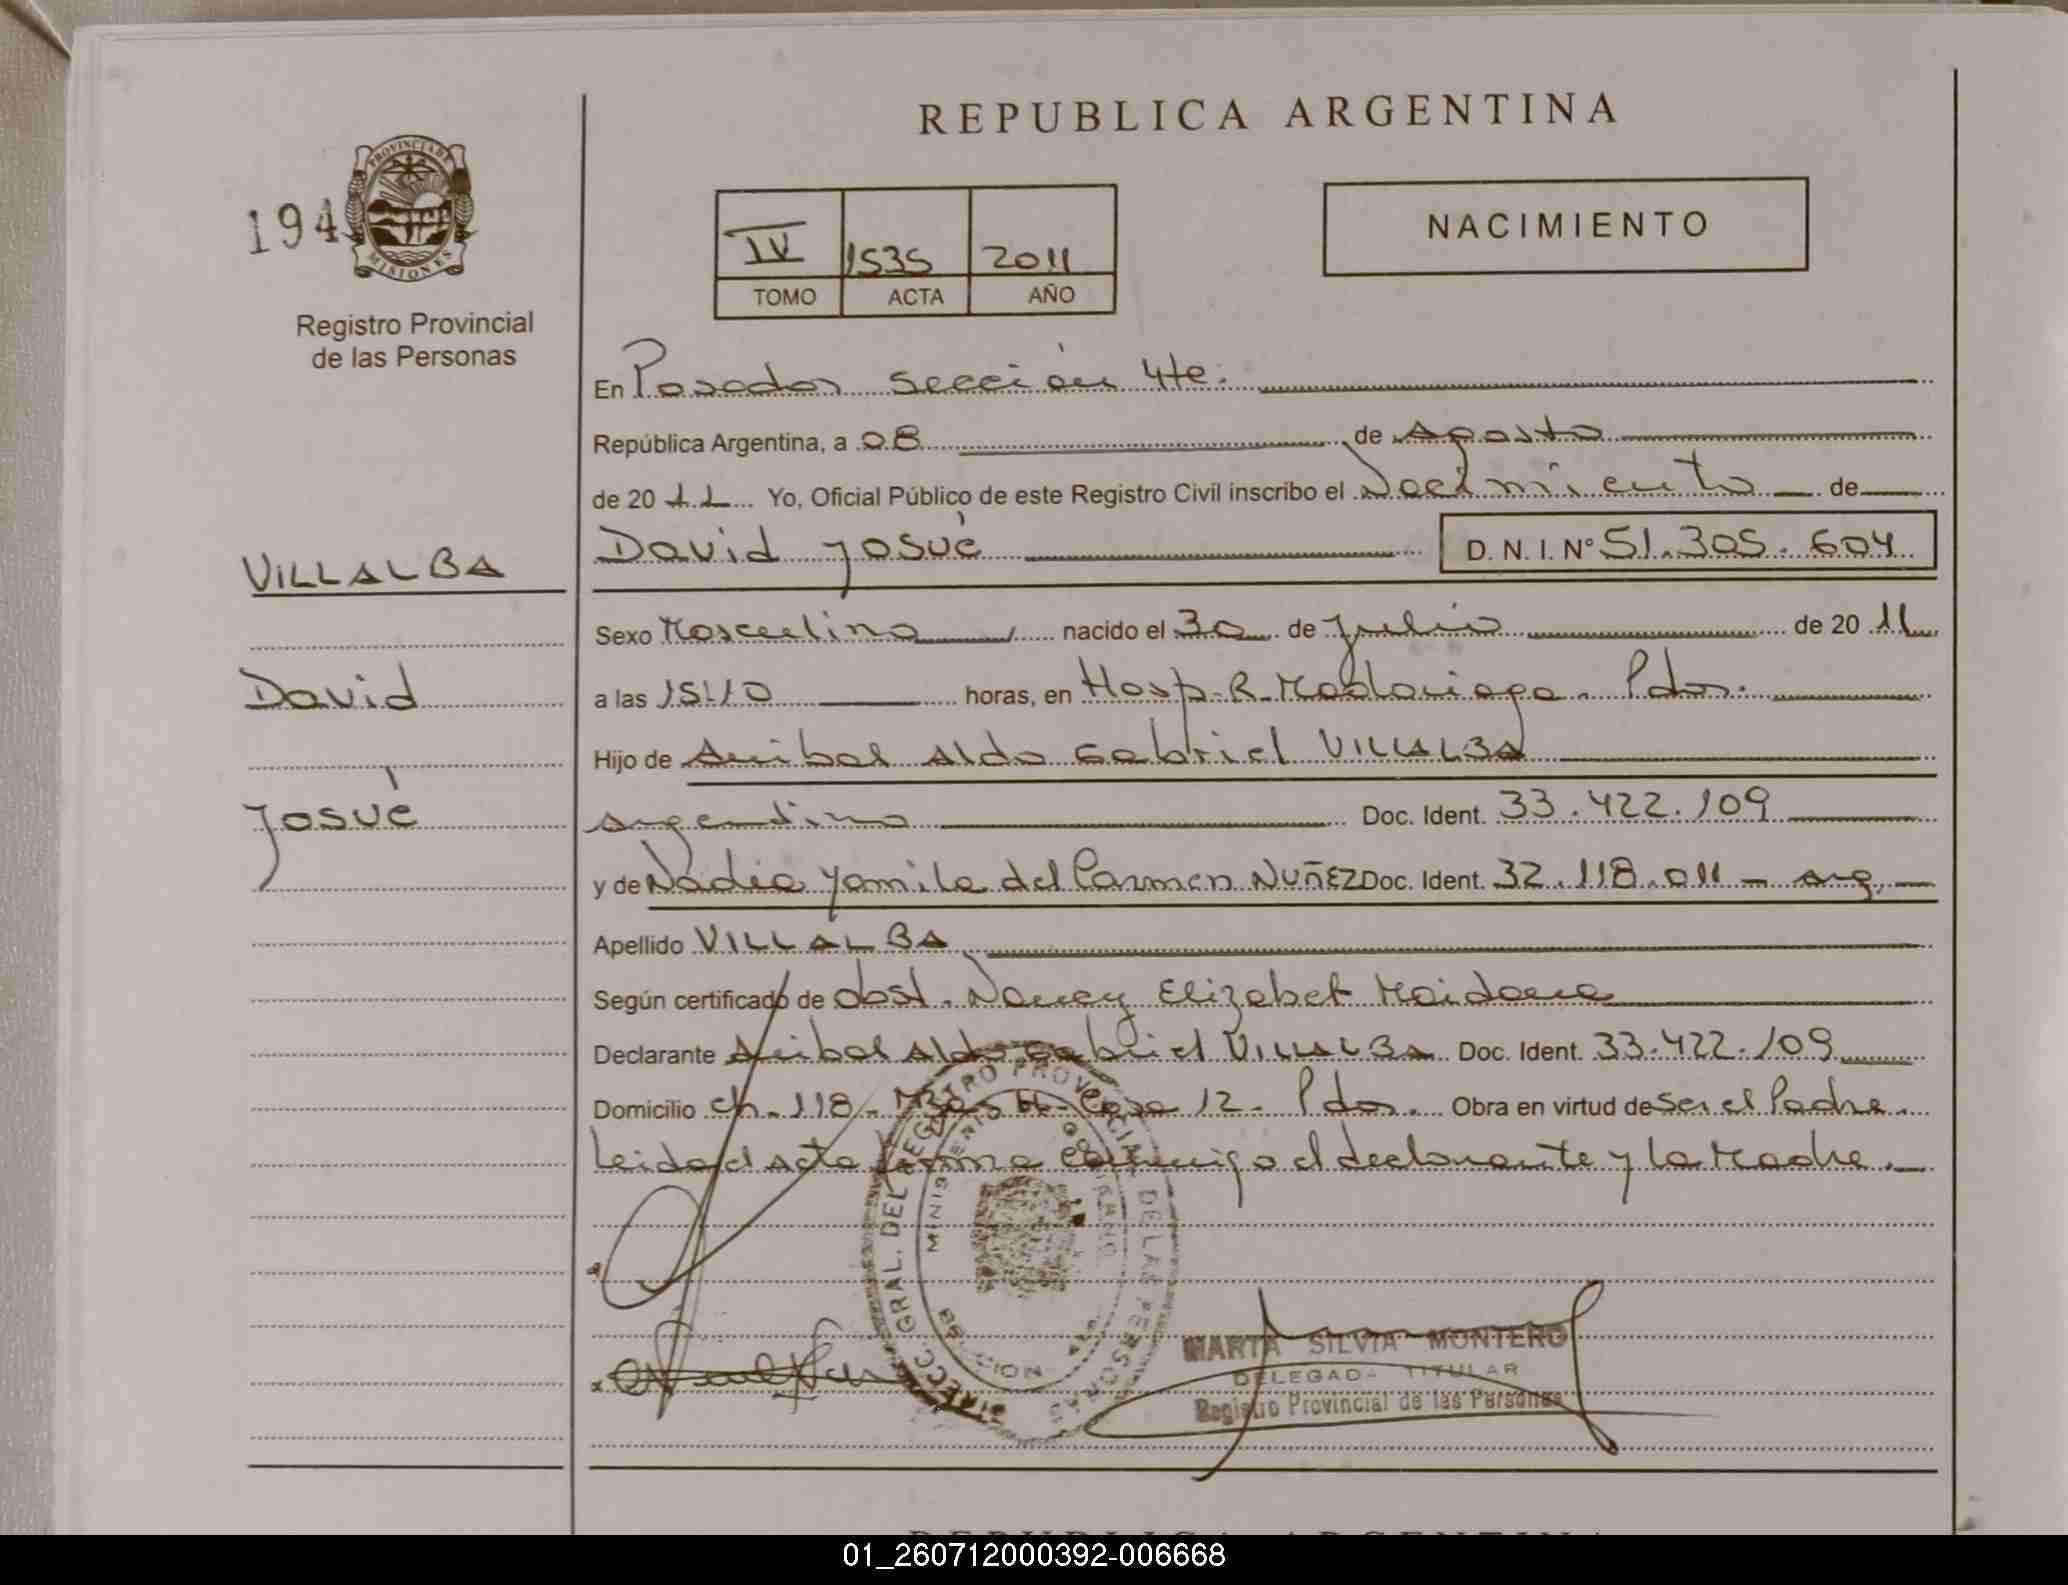 REPUBLICA ARGENTINA
194
PROVINCIA DE
MISIONES
Registro Provincial
de las Personas
IV 1535 2011
TOMO ACTA AÑO
NACIMIENTO
En Posadas sección 4ta.
República Argentina, a 08 de Agosto
de 2011 Yo, Oficial Público de este Registro Civil inscribo el Nacimiento de
VILLALBA
David Josué D.N.I. Nº 51.305.604
Sexo Masculino nacido el 30 de Julio de 2011
David
a las 15:10 horas, en Hosp. R. Madariaga. Pdas.
Hijo de Anibal Aldo Gabriel VILLALBA
Josué
argentino Doc. Ident. 33.422.109
y de Nadia Yamila del Carmen NUÑEZ Doc. Ident. 32.118.011 - arg.
Apellido VILLALBA
Según certificado de obst. Nancy Elizabet Maidana
Declarante Anibal Aldo Gabriel VILLALBA Doc. Ident. 33.422.109
Domicilio Ch. 118 - Mza. Casa 12 - Pdas. Obra en virtud de ser el Padre.
Leida el acta firma conmigo el declarante y la Madre.
DIRECC. GRAL. DEL REGISTRO PROVINCIAL DE LAS PERSONAS
MINISTERIO DE GOBIERNO
MARTA SILVIA MONTERO
DELEGADA TITULAR
Registro Provincial de las Personas
REPUBLICA ARGENTINA
01_260712000392-006668